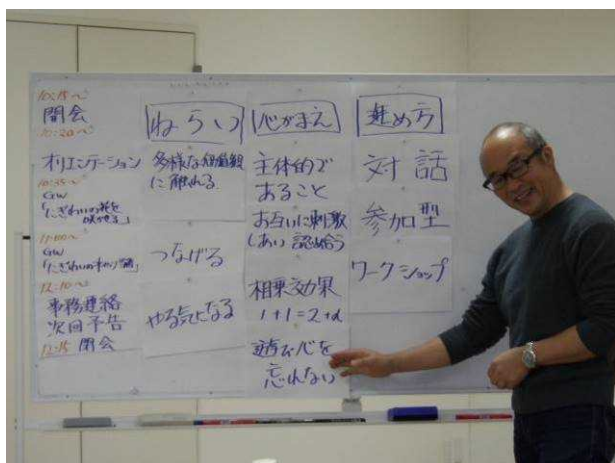 10:15〜
開会
10:20〜
オリエンテーション
10:35〜
GW
「にぎわいの花を
咲かせる」
11:00〜
GW
「にぎわいの
12:10〜
事務連絡
次回予告
12:15 閉会
ねらい
多様な
に触れる
つなげる
やる気になる
心がまえ
主体的で
あること
お互いに刺激
しあい 認め合う
相乗効果
1+1=2+α
遊び心を
忘れない
進め方
対話
参加型
ワークショップ